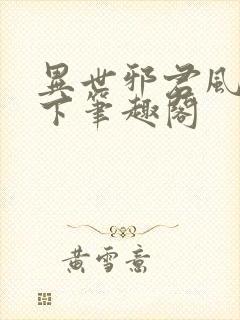 異世邪君風
下筆趣閣
黄雪意